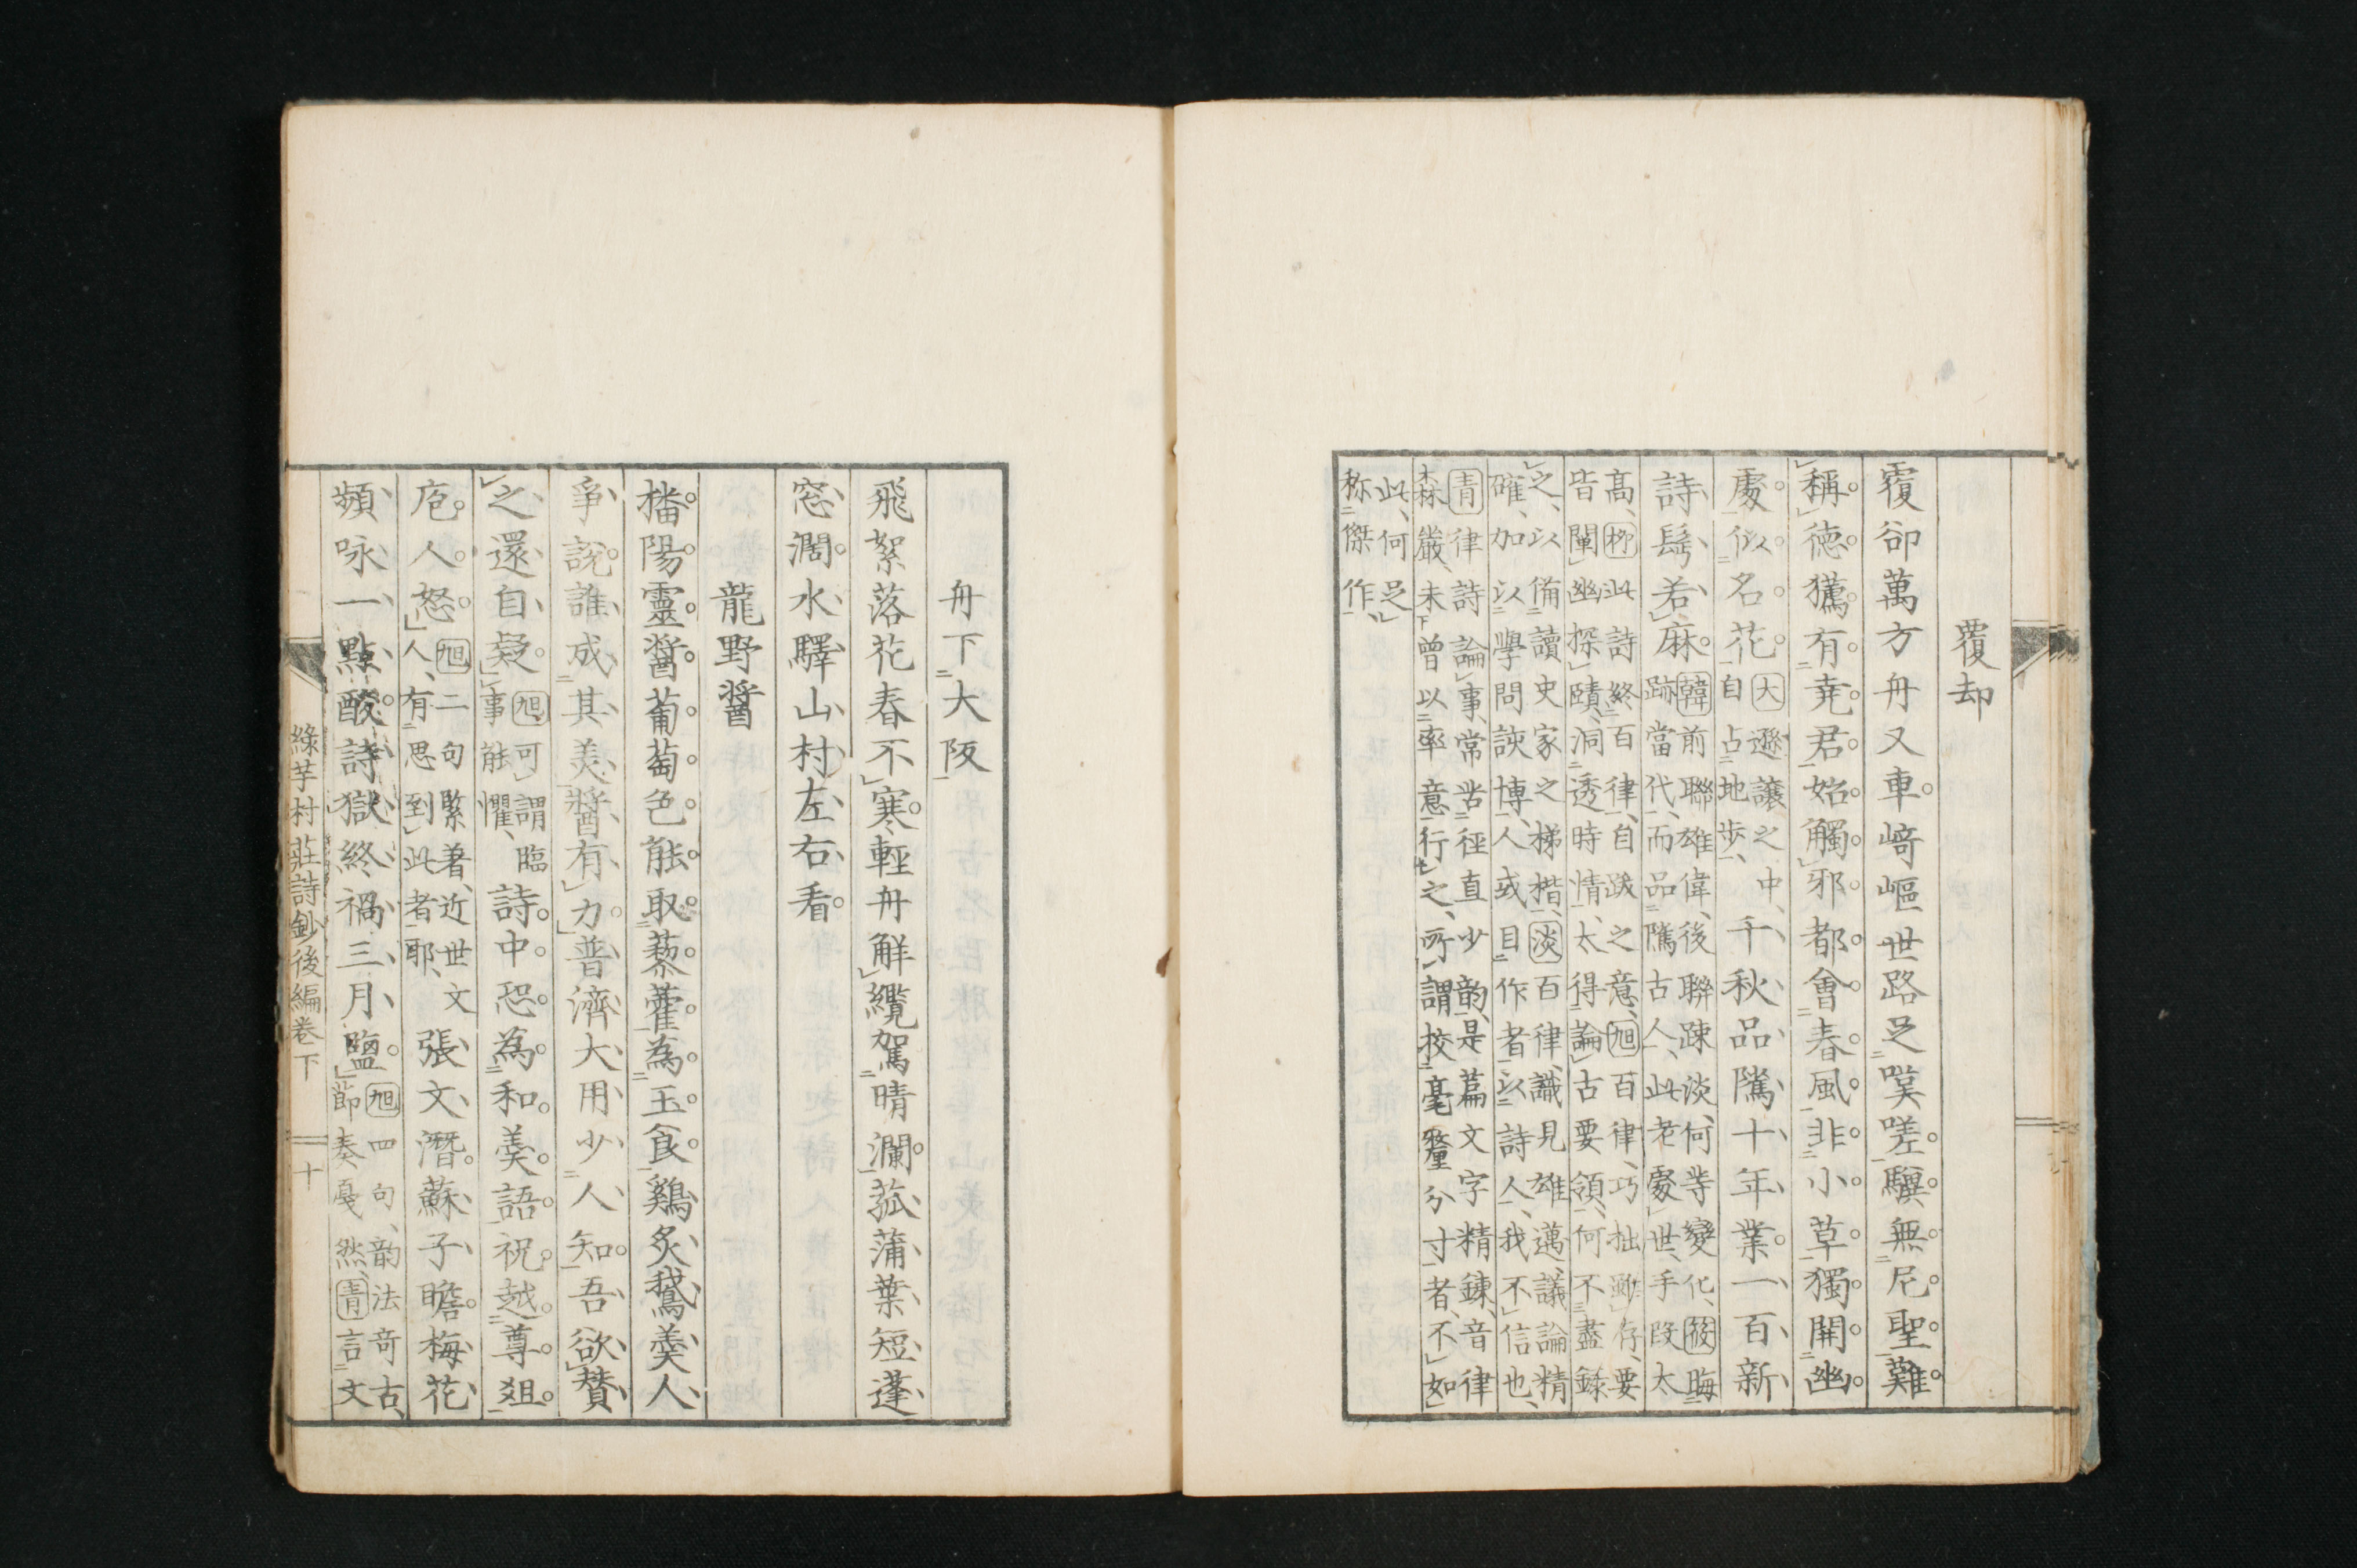 覆却
覆卻萬方舟又車崎嶇世路足嘆嗟驥無尼聖難
稱德獁有堯君始觸邪都會春風非小草獨開幽
處似名花
大遜讓之中、
自占地步、
千秋品隲十年業一百新
詩髩若麻
韓前聯雄偉、後聯疎淡、何等變化、筱晦
跡當代、而品隲古人、此老處世手段太
高、柳此詩終百律、自跋之意、旭百律、巧拙尠存、要
皆闡幽探賾、洞透時情、太得論古要領、何不盡錄
之、以備讀史家之梯楷、淡百律、識見雄邁、議論精
確、加以學問諛博、人或目作者以詩人、我不信也、
青律詩論事、常苦徑直少韵、是篇文字精鍊、音律
森嚴、未曾以率意行之、所謂校毫釐分寸者、不如
此、何足
称傑作、
舟下大阪
飛絮落花春不寒輕舟解纜駕晴瀾菰蒲葉短蓬
窓濶水驛山村左右看
龍野醬
播陽靈醬葡萄色能取藜藿為玉食鷄炙鵞羹人
爭說誰成其美醬有力普濟大用少人知吾欲賛
之還自疑
旭可謂臨
事能懼、
詩中恐為和羹語祝越尊俎
庖人怒
旭二句緊著、近世文
人、有思到此者耶、
張文潛蘇子瞻梅花
頻咏一點酸詩獄終禍三月鹽
旭四句、韵法奇古、
節奏戛然、青言文
綠芋村莊詩鈔後編卷下
十